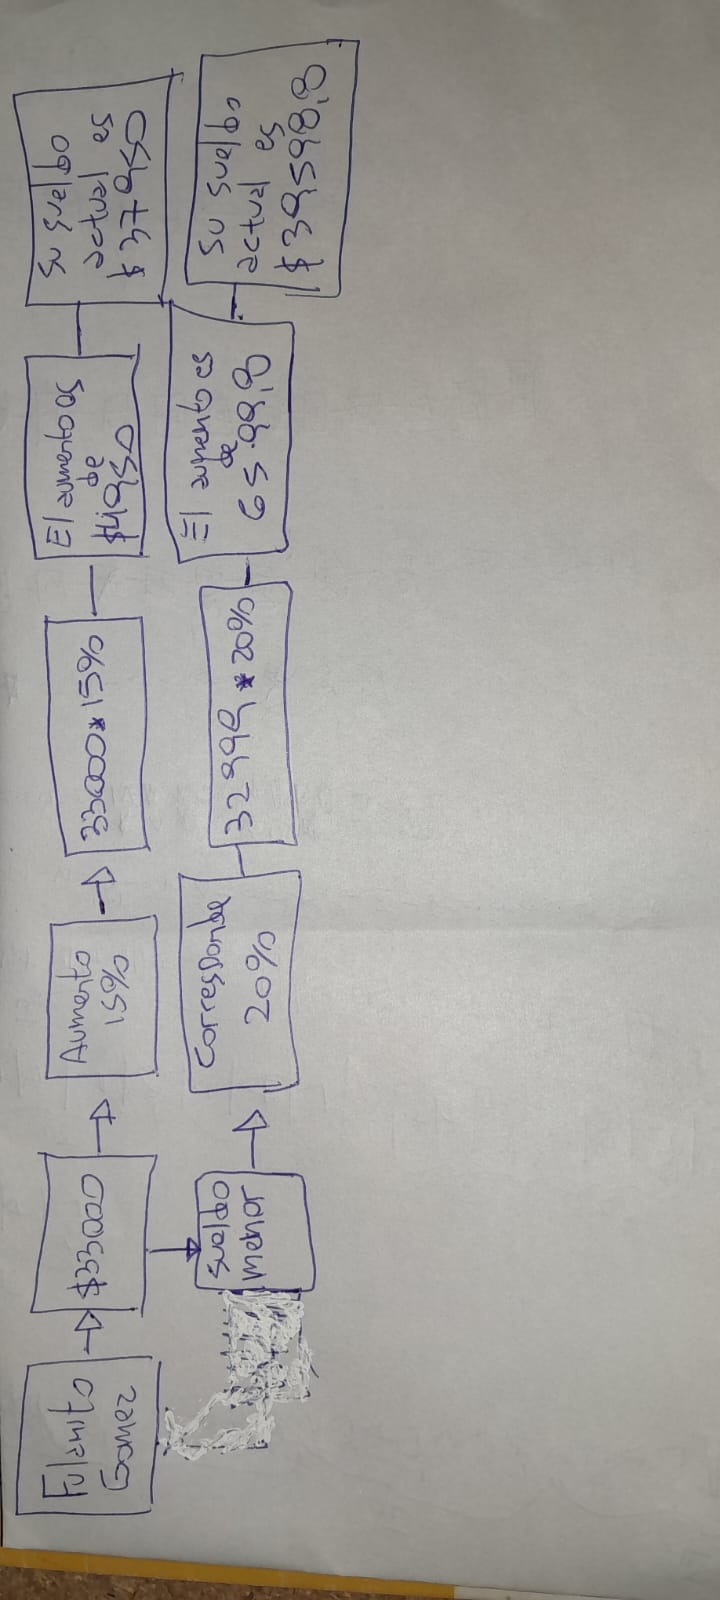 Fulanito
Gomez
$33000
Aumento
15%
33000*15%
El aumento es
de
$4950
Su sueldo
actual es
$37950
sueldo
menor
Corresponde
20%
32999*20%
El aumento es
de
6599,8
Su sueldo
actual es
$39598,8